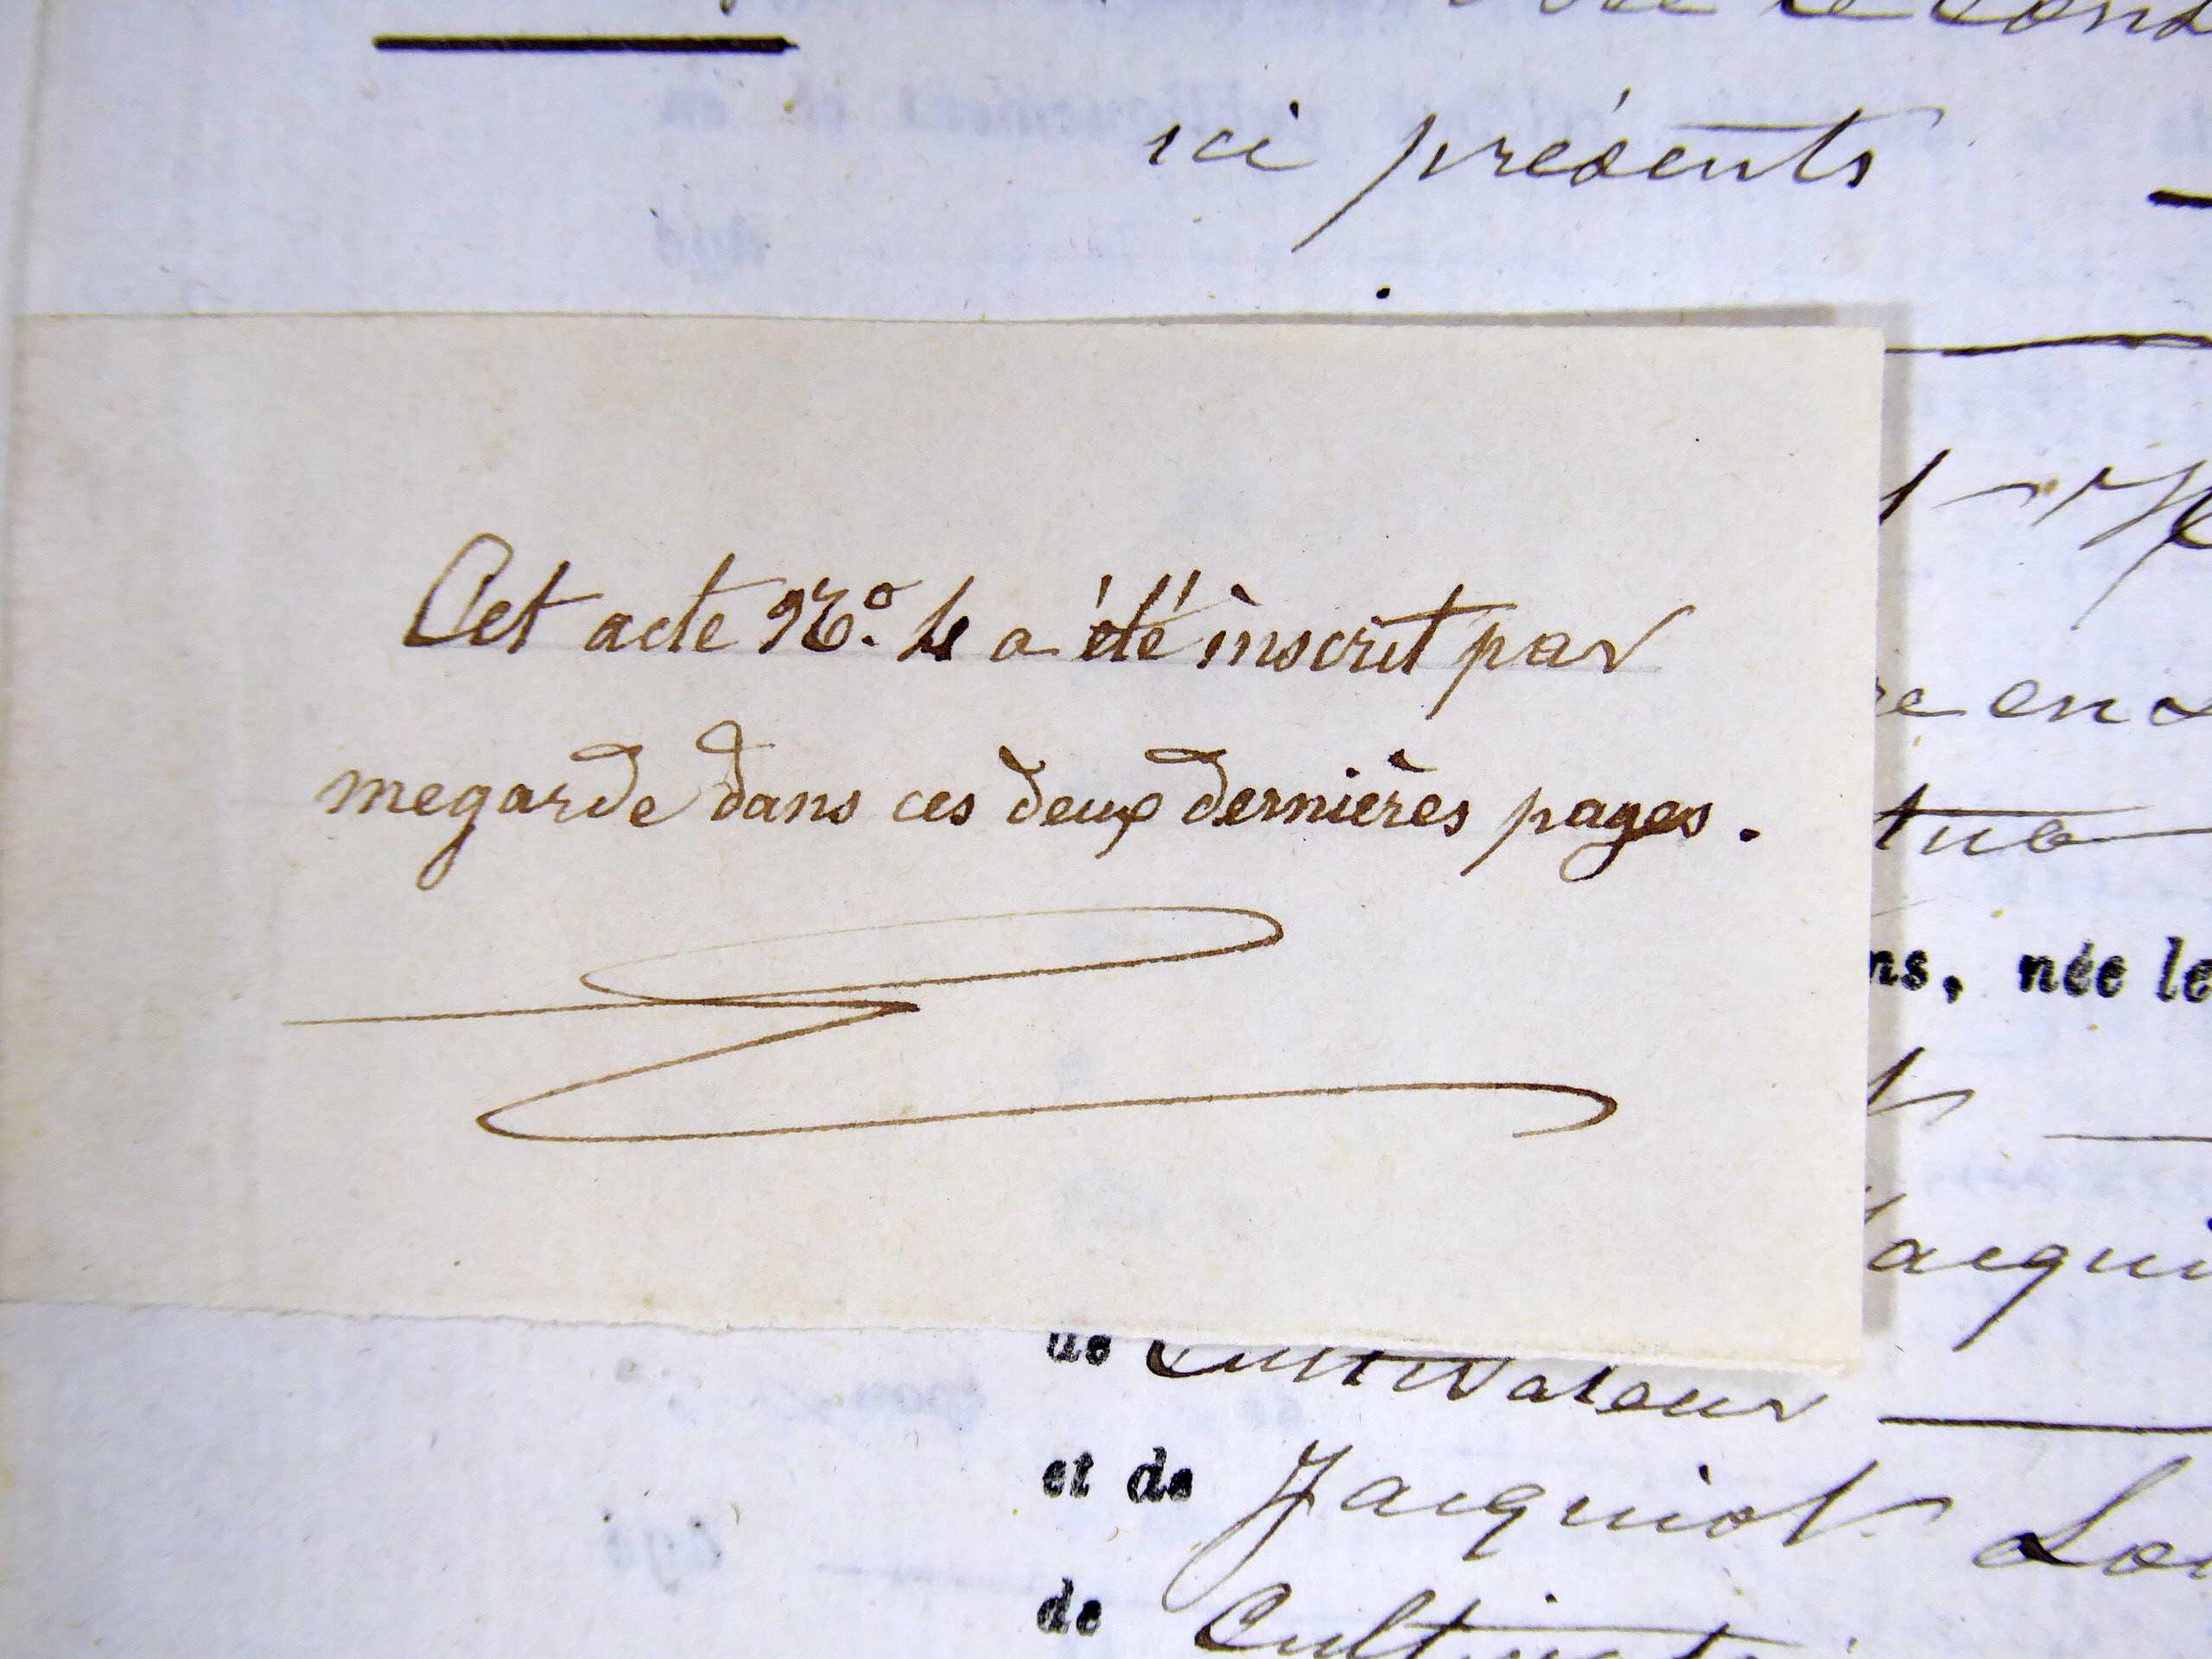 ici présents
Cet acte N.º 4 a été inscrit par
megarde dans ces deux dernières pages.
ns, née le
de Cultivateur
et de Jacquiot
de